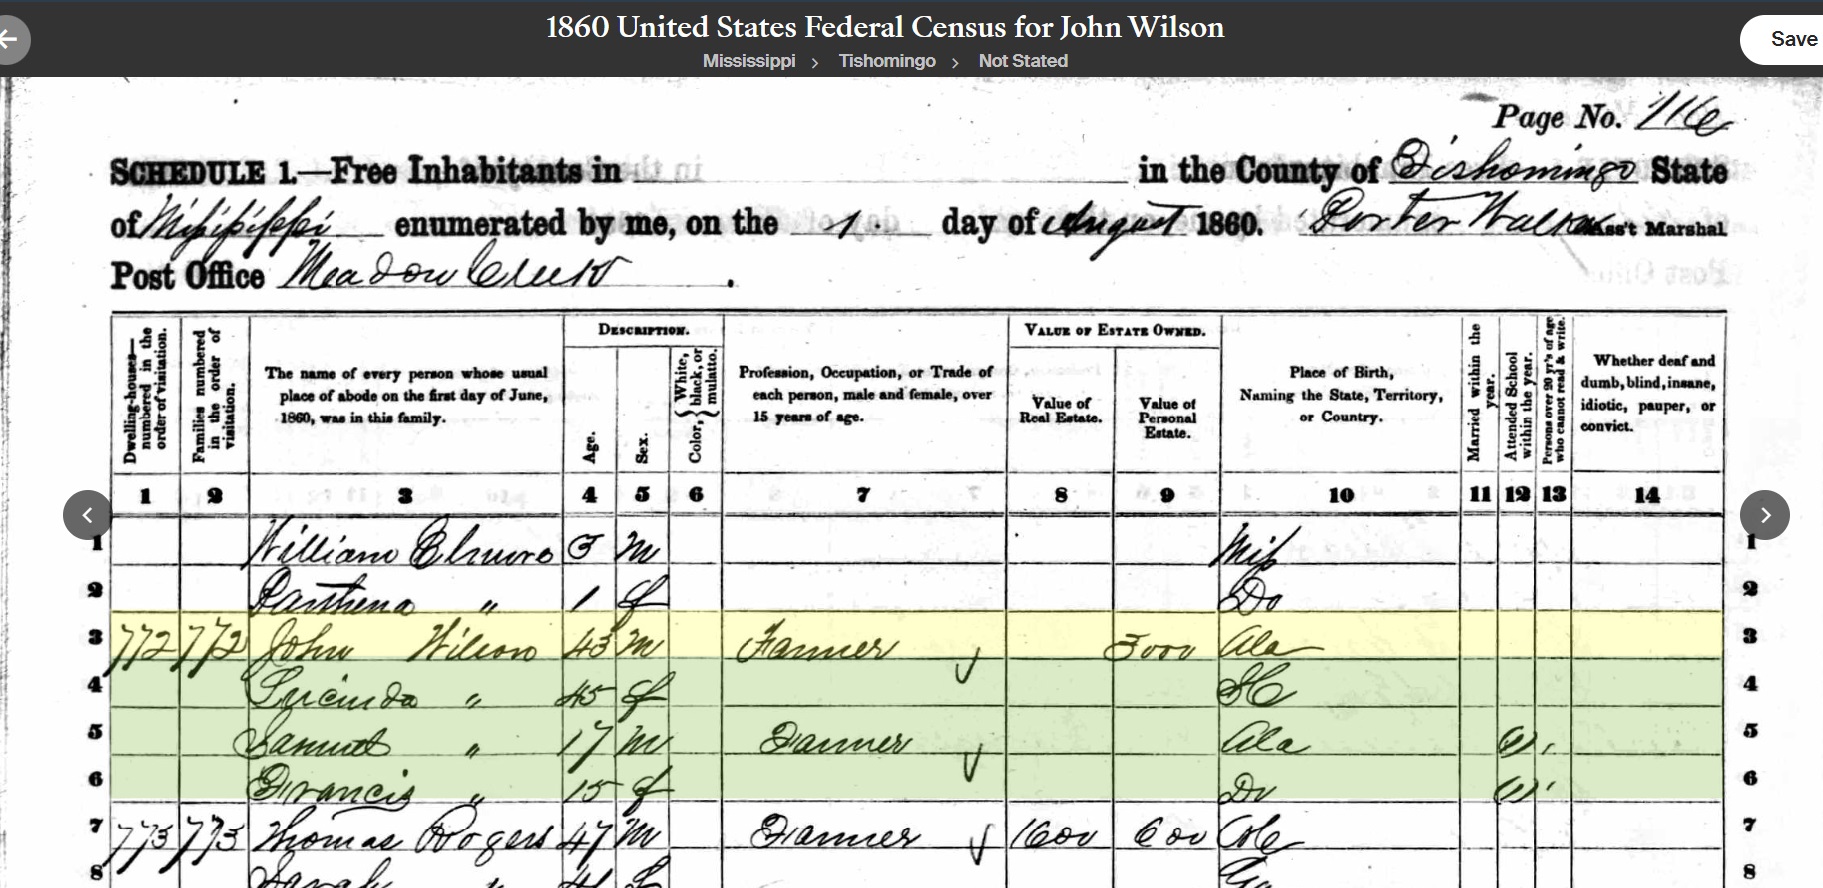 1860 United States Federal Census for John Wilson
Mississippi > Tishomingo > Not Stated
Save
Page No. 116
SCHEDULE 1.—Free Inhabitants in in the County of Tishomingo State
of Missisippi enumerated by me, on the 1. day of August 1860. Porter Walker Ass't Marshal
Post Office Meadow Creek.
Dwelling-houses—numbered in the order of visitation.
Families numbered in the order of visitation.
The name of every person whose usual place of abode on the first day of June, 1860, was in this family.
DESCRIPTION.
Age.
Sex.
Color, { White, black, or mulatto.
Profession, Occupation, or Trade of each person, male and female, over 15 years of age.
VALUE OF ESTATE OWNED.
Value of Real Estate.
Value of Personal Estate.
Place of Birth, Naming the State, Territory, or Country.
Married within the year.
Attended School within the year.
Persons over 20 yr's of age who cannot read & write.
Whether deaf and dumb, blind, insane, idiotic, pauper, or convict.
1 2 3 4 5 6 7 8 9 10 11 12 13 14
1 William 3 m Miss 1
2 " 1 f Do 2
3 772 772 John Wilson 43 m Farmer Ala 3
4 Lucinda " 45 f SC 4
5 Samuel " 17 m Farmer Ala (1) 5
6 Francis " 15 f Do (1) 6
7 773 773 Thomas Rogers 47 m Farmer 1600 600 7
8 Sarah " 41 f Ga 8